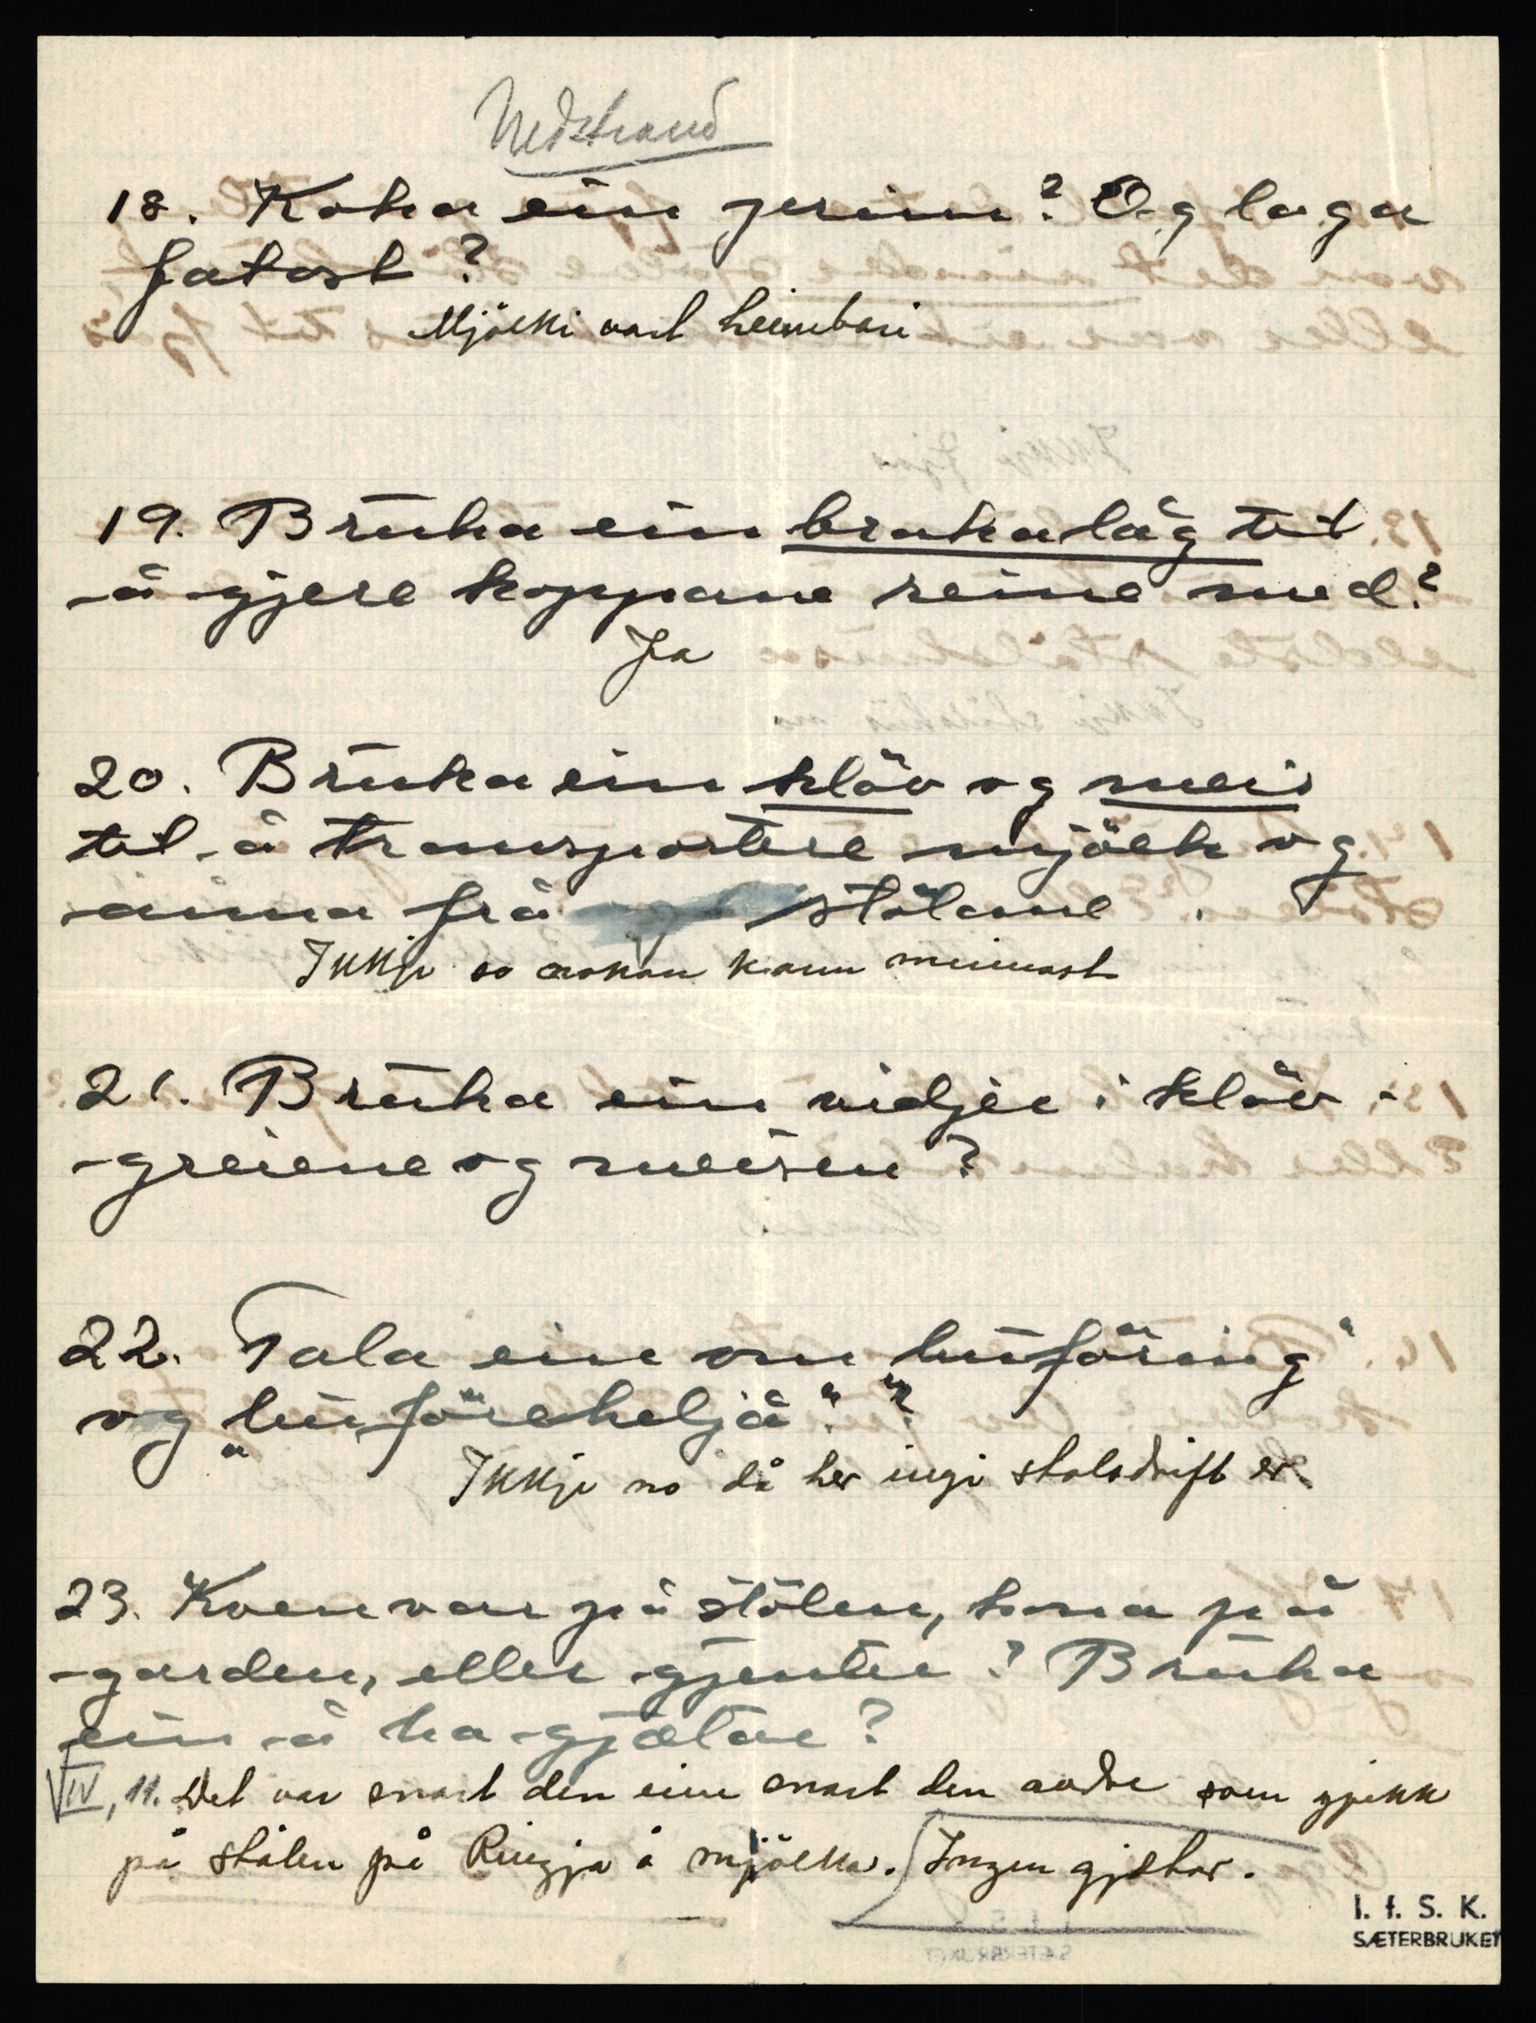 Nedstrand
18. Koka ein prim? Og laga
fatost?
Mjölki vart heimbori
19. Bruka ein brakalåg til
å gjere koppane reine med?
Ja
20. Bruka ein klöv og meis
til å transportere mjölk og
anna frå stölane.
Ikkje so nokon kann minnast
21. Bruka ein vidjer i klöv-
greiene og meisen?
22. Tala ein om "buföring"
og "buförehelja"?
Ikkje no då her ingi stølsdrift er.
23. Kven var på stölen, kona på
garden, eller gjenter? Bruka
ein å ha gjætar?
IV, 11. Det var snart den eine snart den andre som gjekk
på stølen på Ringja å mjölka. Ingen gjetar.
I. f. S. K.
SÆTERBRUKET